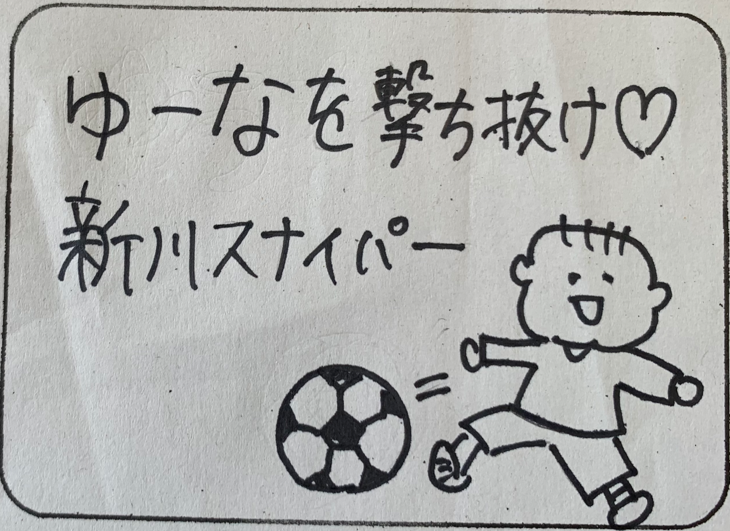 ゆーなを撃ち抜け♡
新川スナイパー